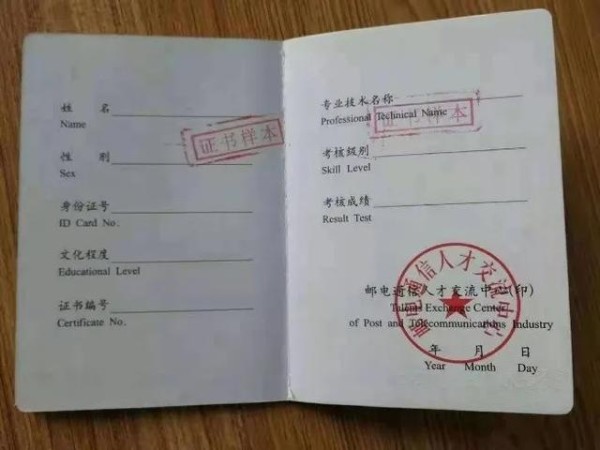 姓 名
Name
证书样本
性 别
Sex
身份证号
ID Card No.
文化程度
Educational Level
证书编号
Certificate No.
专业技术名称
Professional Technical Name
证书样本
考核级别
Skill Level
考核成绩
Result Test
邮电通信人才交流中心
邮电通信人才交流中心(印)
Talent Exchange Center
of Post and Telecommunications Industry
年 月 日
Year Month Day